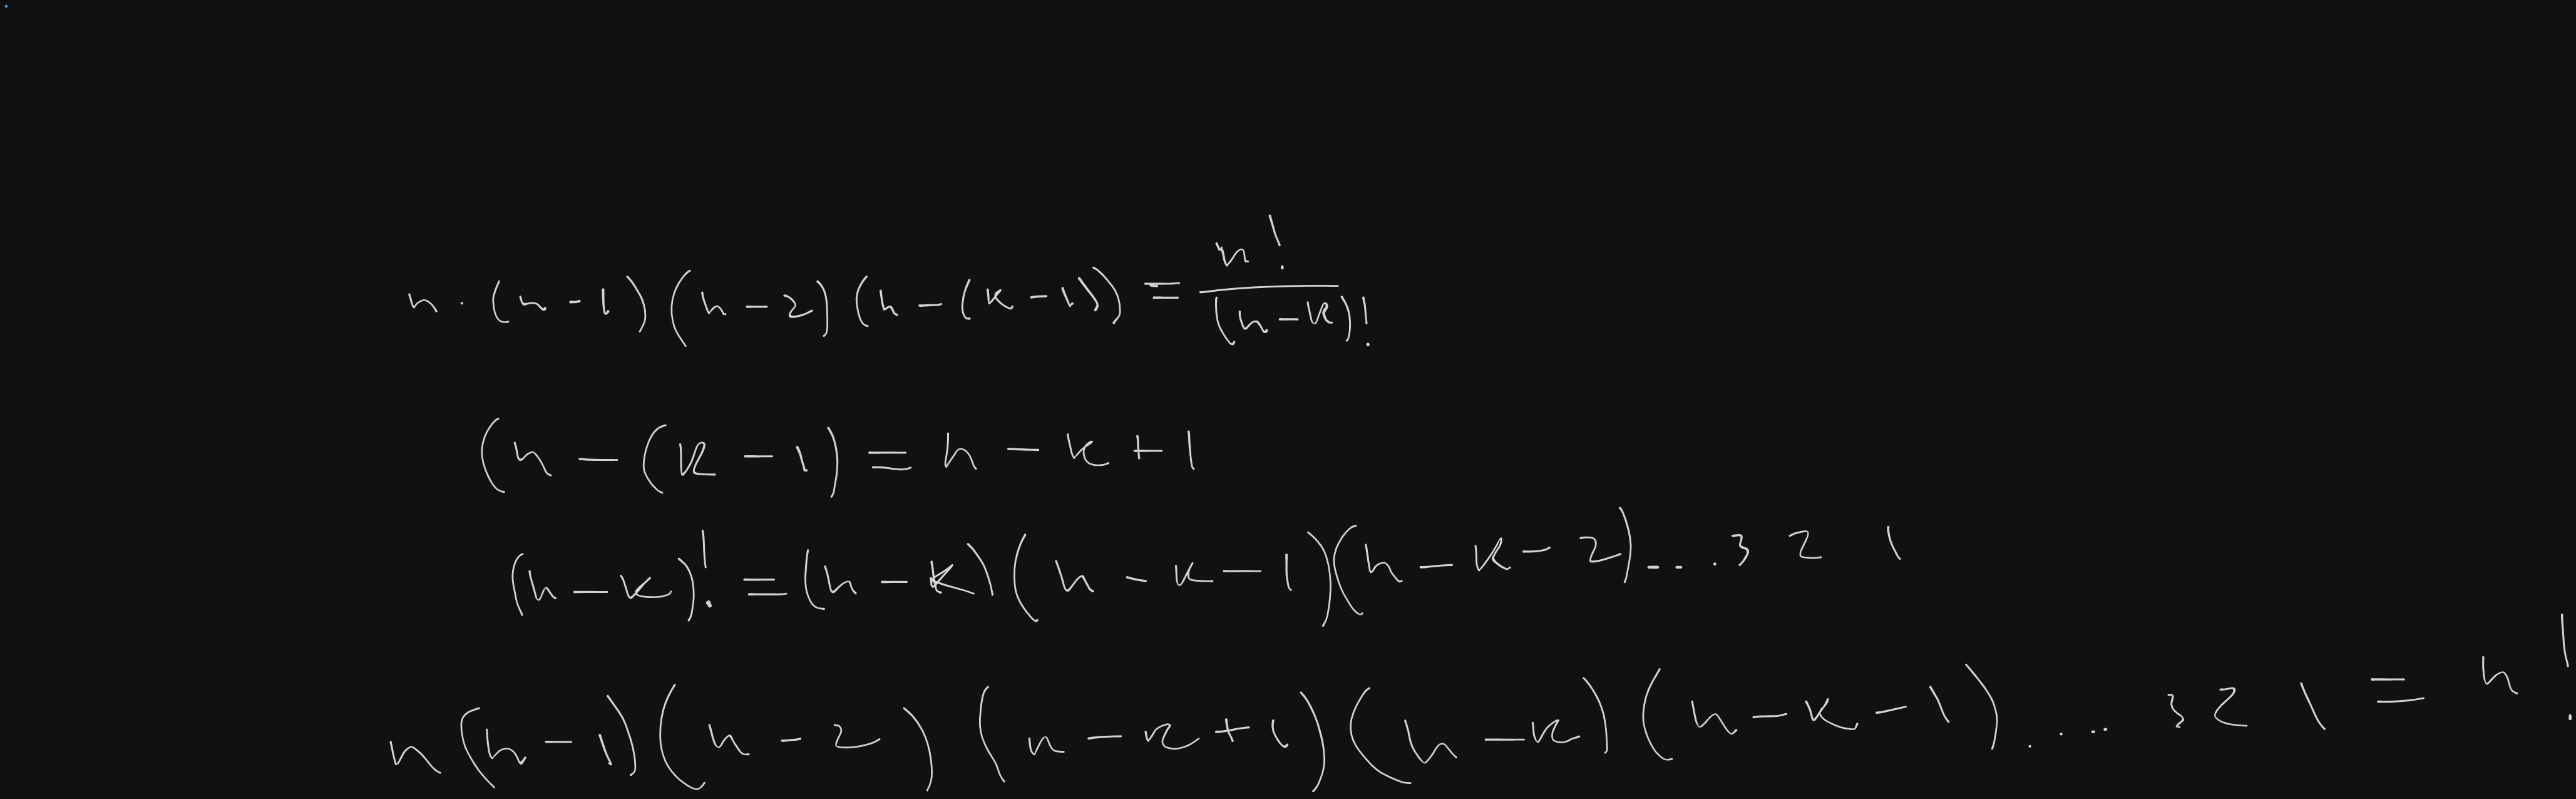 n · (n - 1)(n - 2)(n - (k - 1)) = n! / (n - k)!
(n - (k - 1) = n - k + 1
(n - k)! = (n - k)(n - k - 1)(n - k - 2)... 3 2 1
n(n - 1)(n - 2)(n - k + 1)(n - k)(n - k - 1).... 3 2 1 = n!